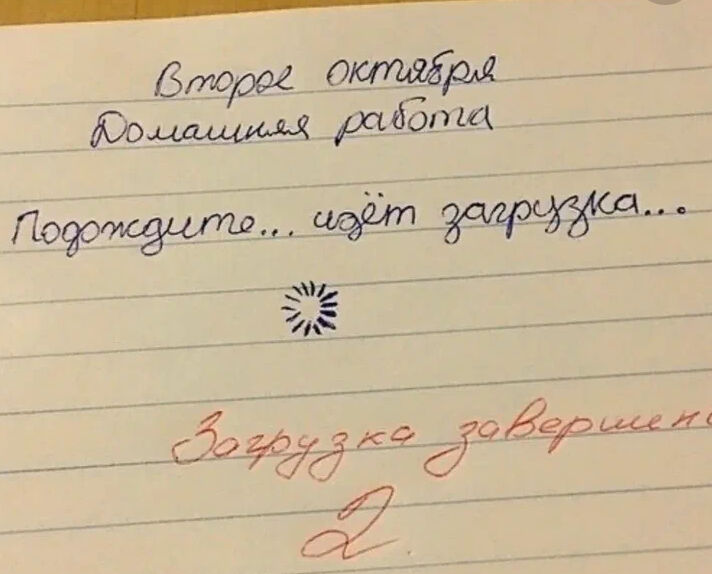 Второе октября
Домашняя работа
Подождите... идёт загрузка...
Загрузка завершен
2.